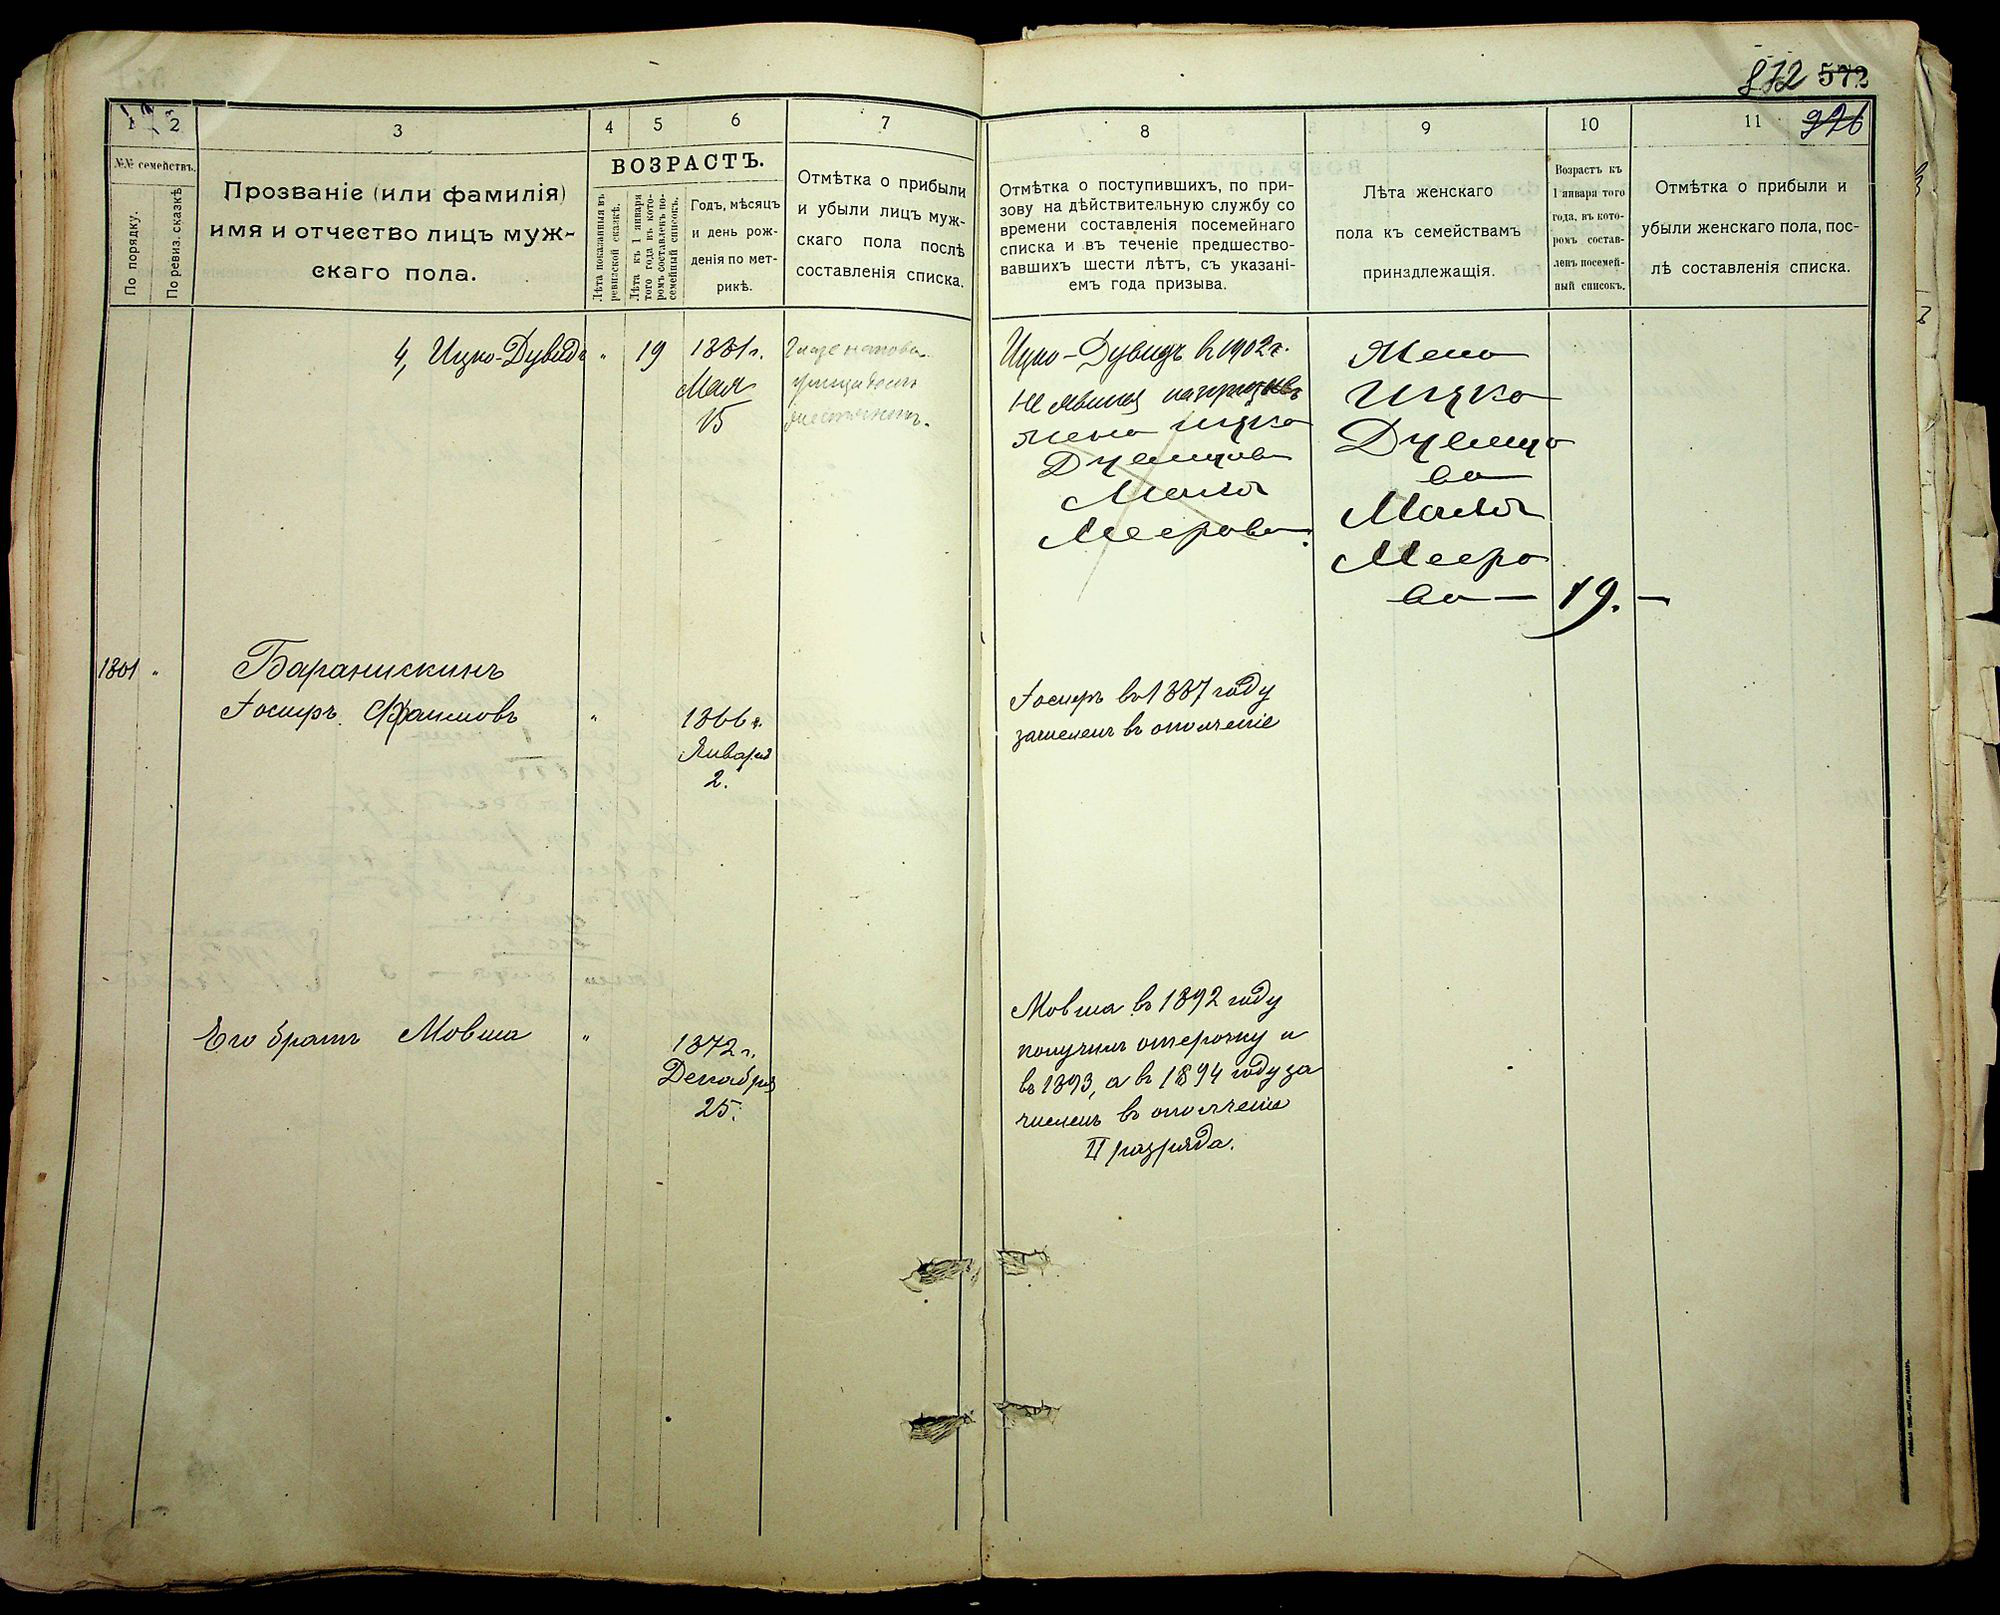 872 572
926
1 2 3 4 5 6 7 8 9 10 11
№№ семействъ.
По порядку.
По ревиз. сказкѣ
Прозваніе (или фамилія)
имя и отчество лицъ муж-
скаго пола.
ВОЗРАСТЪ.
Лѣта показанныя въ
ревизской сказкѣ.
Лѣта къ 1 января
того года въ кото-
ромъ составленъ по-
семейный списокъ.
Годъ, мѣсяцъ
и день рож-
денія по мет-
рикѣ.
Отмѣтка о прибыли
и убыли лицъ муж-
скаго пола послѣ
составленія списка.
Отмѣтка о поступившихъ, по при-
зову на дѣйствительную службу со
времени составленія посемейнаго
списка и въ теченіе предшество-
вавшихъ шести лѣтъ, съ указані-
емъ года призыва.
Лѣта женскаго
пола къ семействамъ
принадлежащія.
Возрастъ къ
1 января того
года, въ кото-
ромъ состав-
ленъ посемей-
ный списокъ.
Отмѣтка о прибыли и
убыли женскаго пола, пос-
лѣ составленія списка.
4, Ицко-Дувидъ „ 19 1881 г.
Мая
15
Ицко-Дувидъ в 1902 г.
не явился на призывъ
жена Ицка
Мееров
Жена
Ицка
Мееро
ва — 19. —
1801 „ Баранискинъ
Іосиръ „ 1866 г.
Января
2.
Іосиръ въ 1887 году
зачисленъ въ ополченіе
Его братъ Мовша „ 1872 г.
Декабря
25.
Мовша въ 1892 году
получилъ отсрочку и
въ 1893, а въ 1894 году за
численъ въ ополченіе
II разряда.